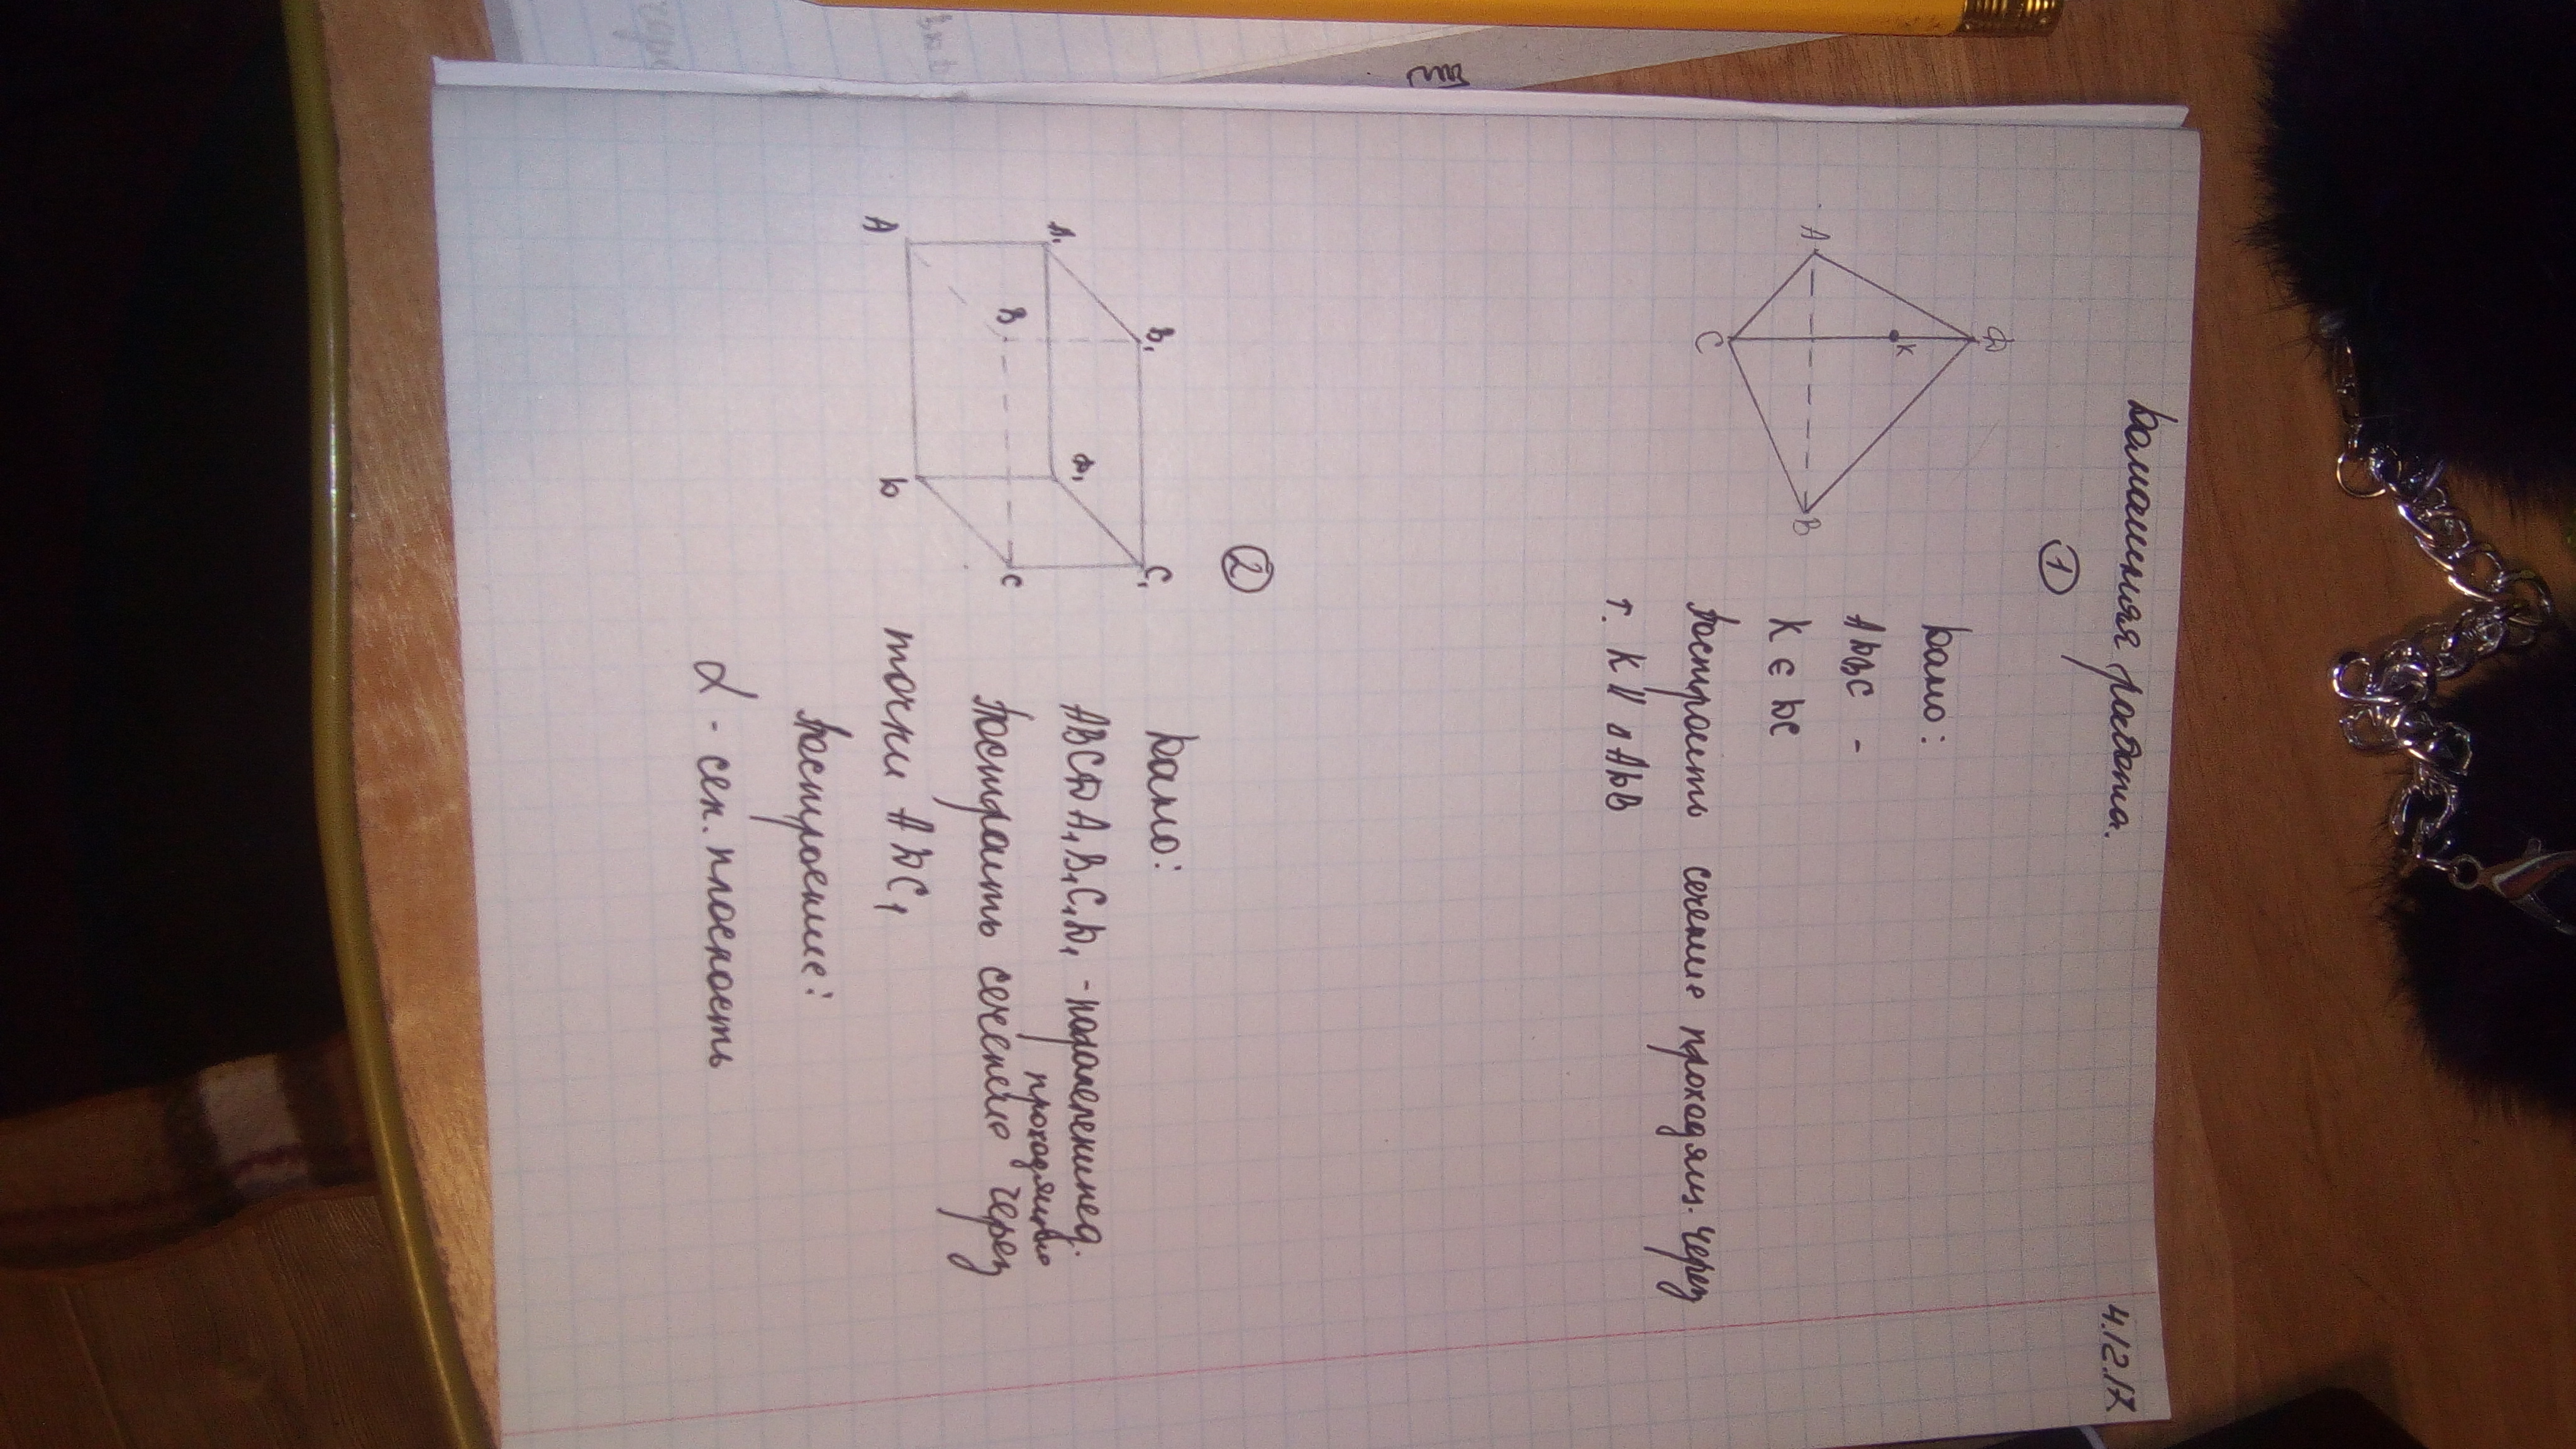 4.12.17
Домашняя работа.
1
Дано:
АДВС -
К ∈ ДС
Построить сечение проходящ. через
т. К || △ АДВ
Д
К
А
В
С
2
Дано:
ABCDA₁B₁C₁D₁ - паралепепипед.
проходящее
Построить сечение через
точки А Д С₁
Построение:
α - сек. плоскость
B₁
C₁
A₁
D₁
B
C
A
D